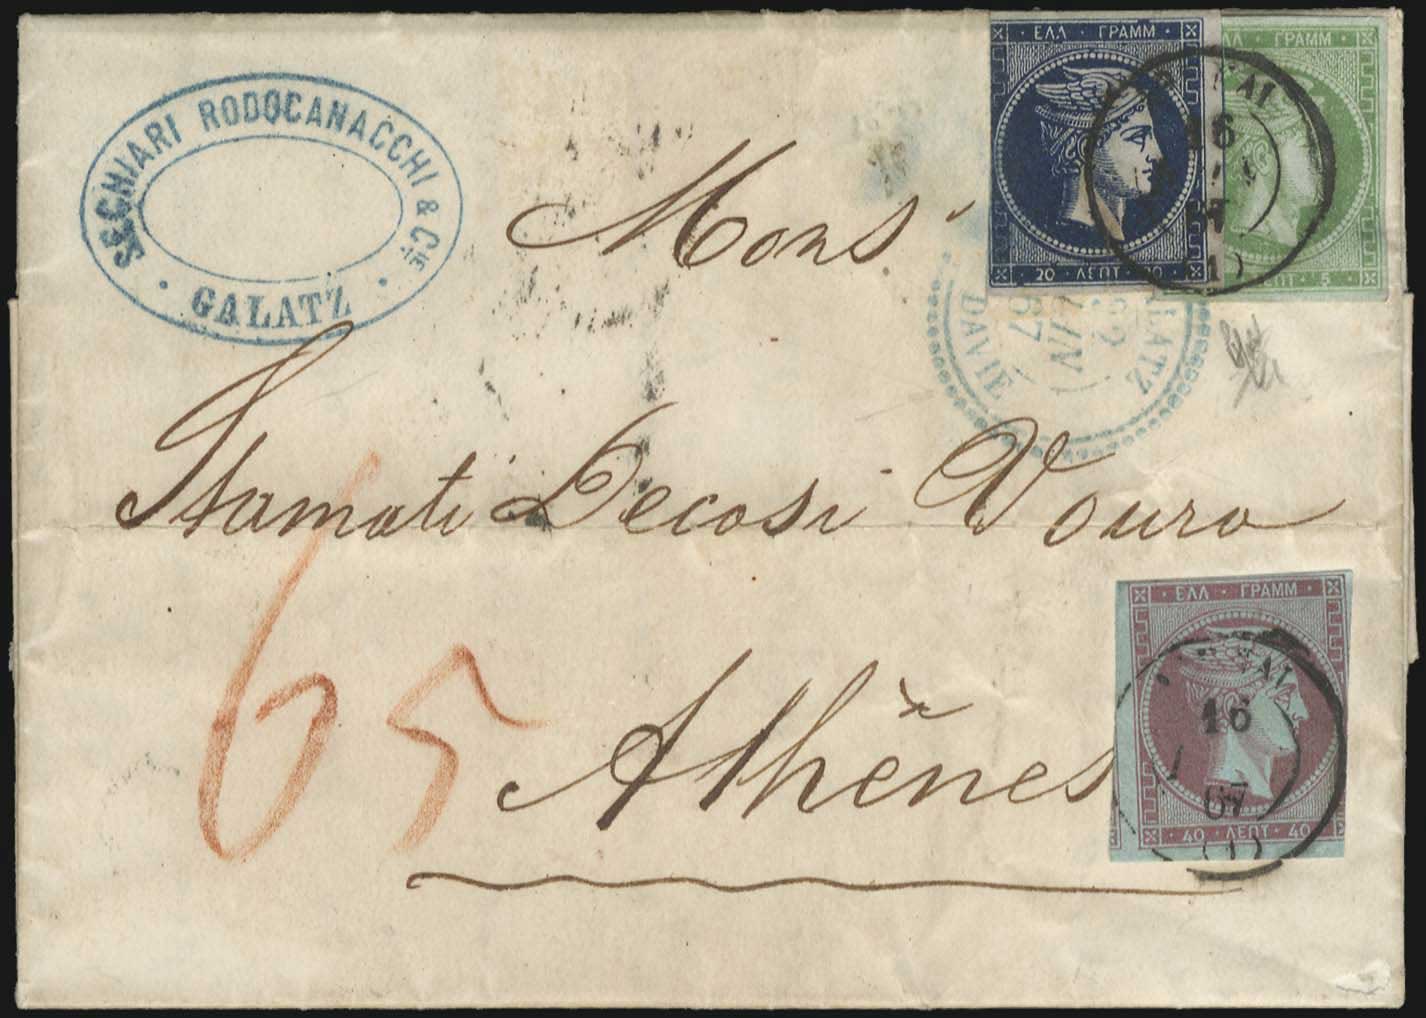 SECHIARI RODOCANACCHI & CIE
· GALATZ ·
ΕΛΛ · ΓΡΑΜΜ
20 · ΛΕΠΤ · 20
ΓΡΑΜΜ
5
16
(1)
LATZ
IUN
67
DAVIE
Mons
Stamati Decosi Vouro
Athènes
65
ΕΛΛ · ΓΡΑΜΜ
40 · ΛΕΠΤ · 40
16
67
(1)